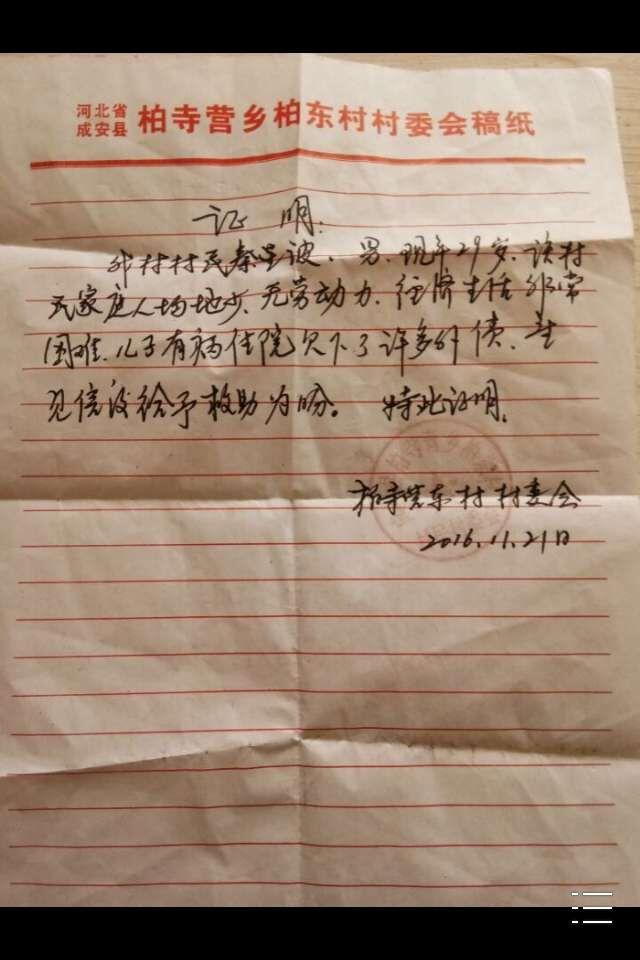 河北省
成安县 柏寺营乡柏东村村委会稿纸
证明:
村村民秦 波、男、现年29岁、该村
民家庭人均地少、无劳动力、经济生活非常
困难、儿子有病住院欠下了许多外债、
见信 给予救助为盼。 特此证明。
柏寺营东村村委会
2016.11.21日